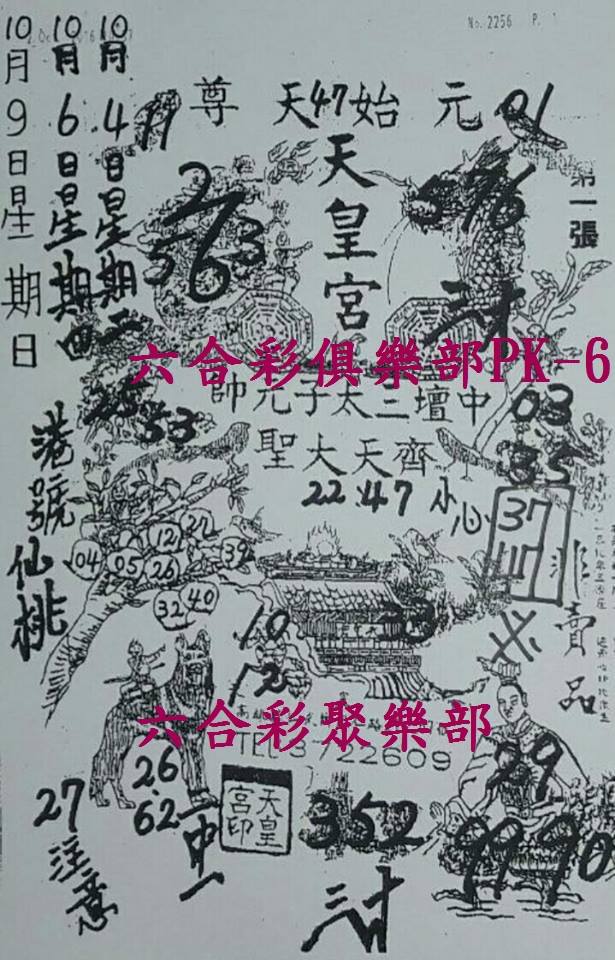 No. 2256 P. 1
10月4日星期二
10月6日星期四
10月9日星期日
元始天尊
47
01
19
天皇宮
2
5 6 3
576
三才
第一張
六合彩俱樂部PK-6
中壇三太子元帥
齊天大聖
03
35
25
53
22.47
小心
37
港號仙桃
04
05
12
27
26
39
32
40
非賣品
10
12
28
六合彩聚樂部
TEL 3722609
26
62
一中一
天皇宮印
27注意
352
三才
29
99
90